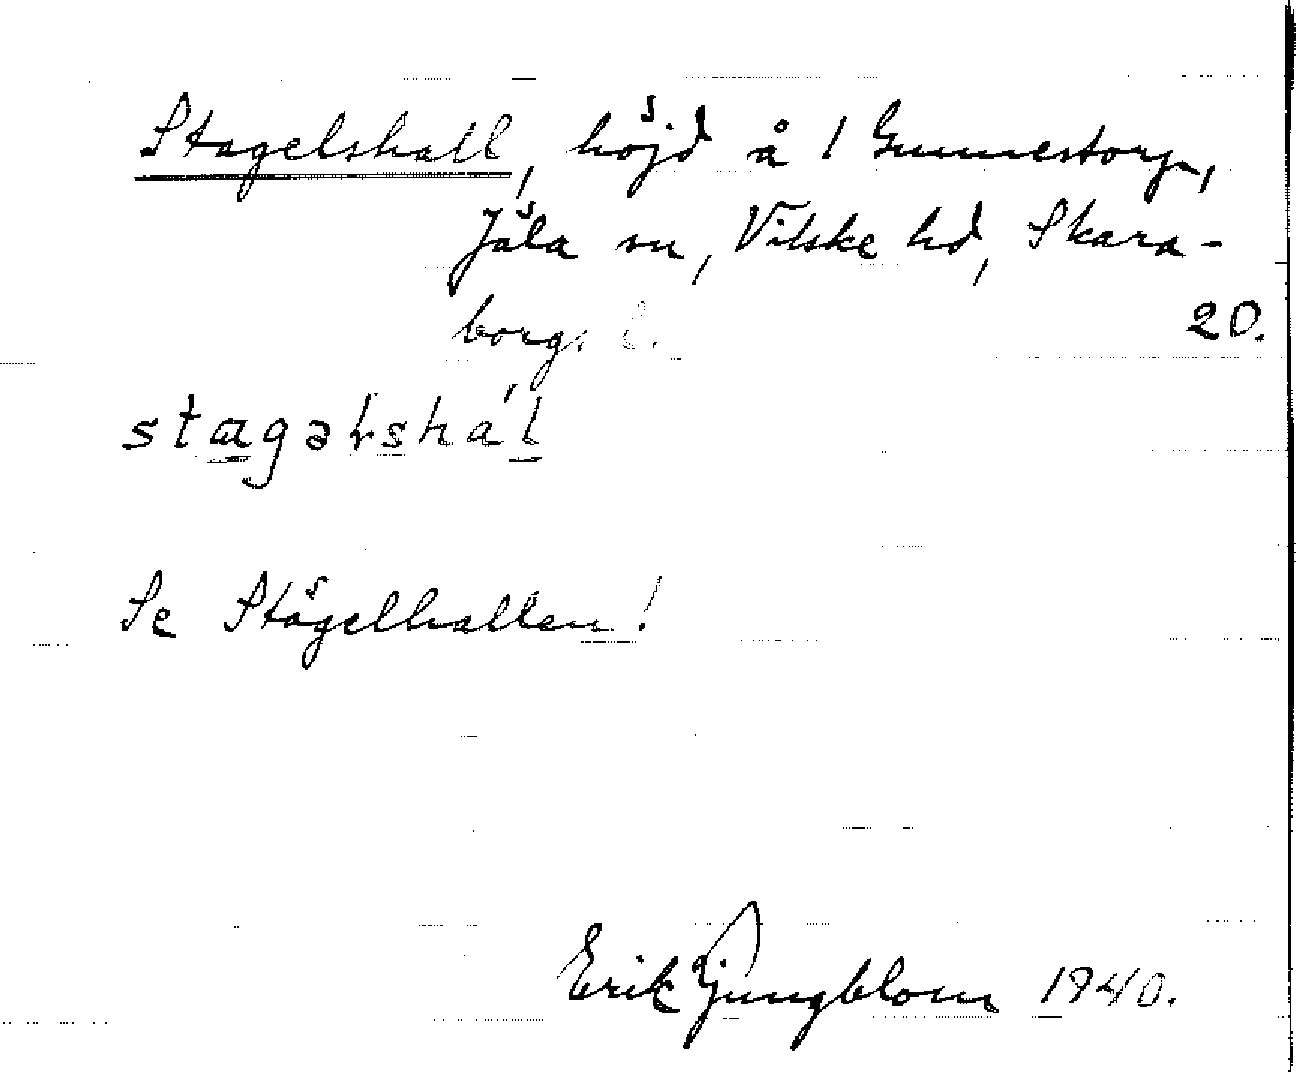 Stagelshall, höjd å 1 Gunnestorp,
Jäla sn, Vilske hd, Skara-
borgs l.
20.
stagəlshál
Se Stögelhallen!
Erik Ljungblom 1940.